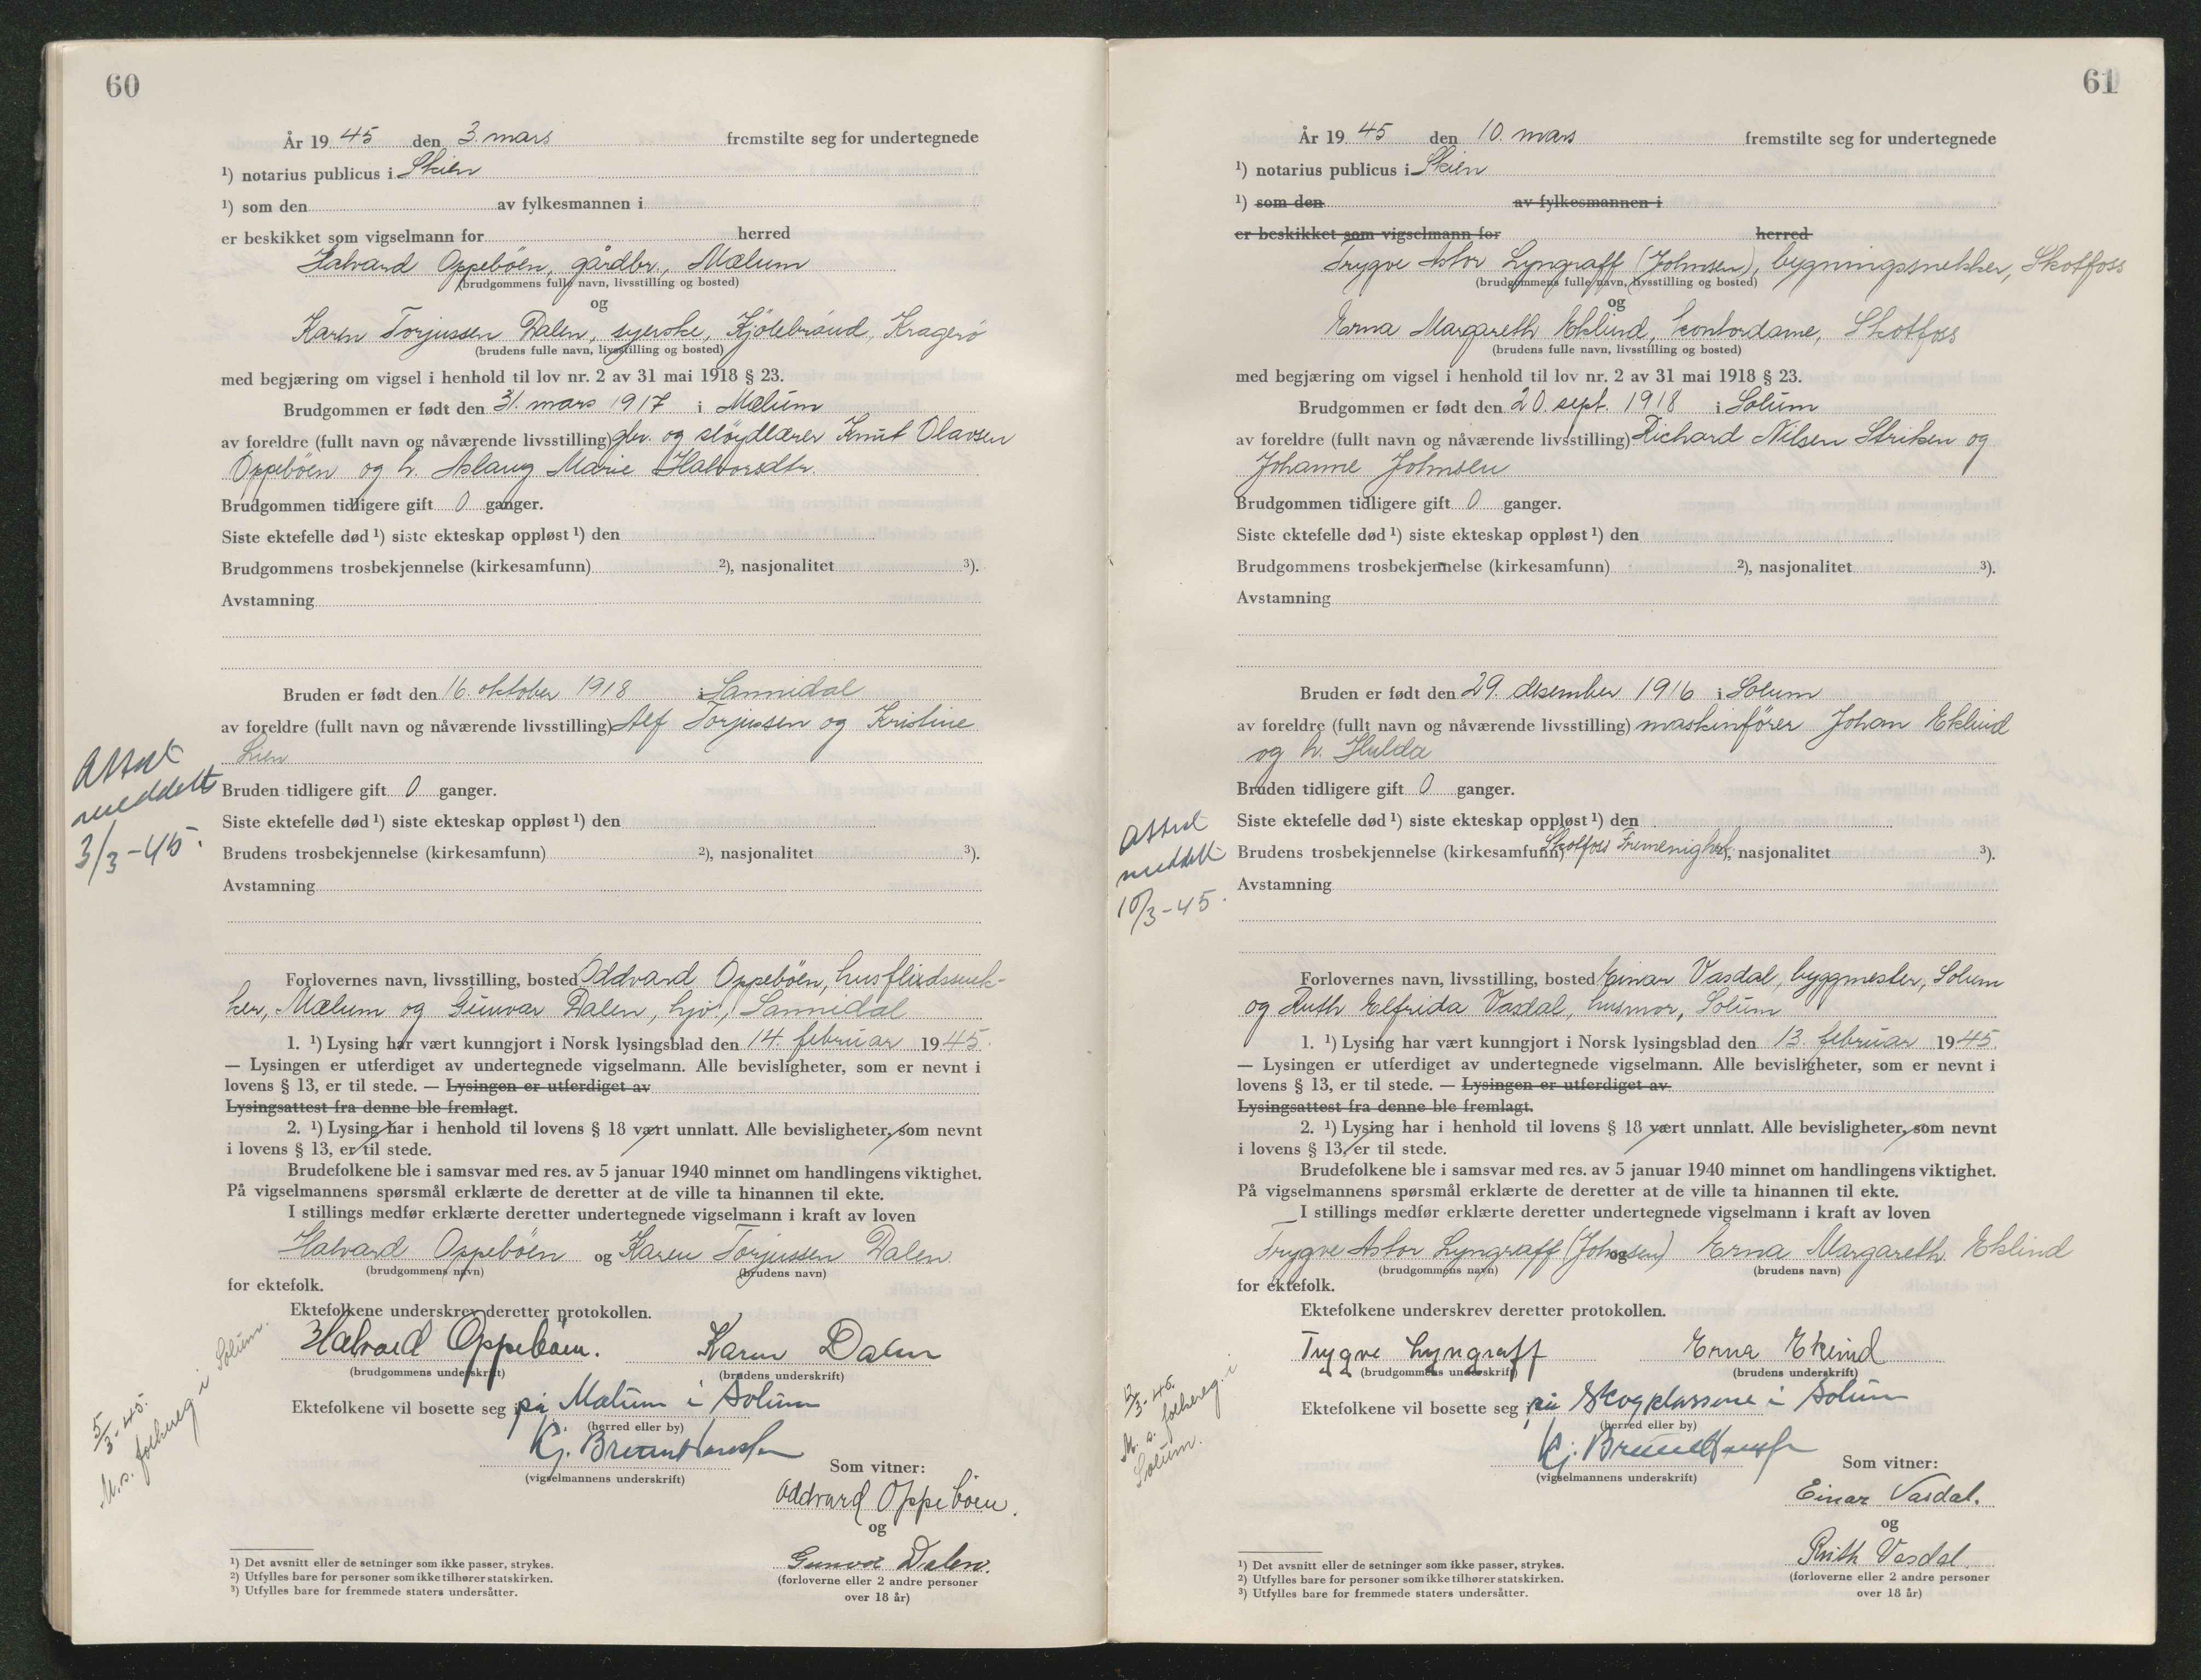 60
År 19 45 den 3. mars fremstilte seg for undertegnede
¹) notarius publicus i Skien
¹) som den av fylkesmannen i
er beskikket som vigselmann for herred
Halvard Oppeböen, gårdbr., Mælum
(brudgommens fulle navn, livsstilling og bosted)
og
Karen Torjussen Dalen, syerske, Kjölebrönd, Kragerö
(brudens fulle navn, livsstilling og bosted)
med begjæring om vigsel i henhold til lov nr. 2 av 31 mai 1918 § 23.
Brudgommen er født den 31. mars 1917 i Mælum
av foreldre (fullt navn og nåværende livsstilling) gbr. og slöydlærer Knut Olavsen
Oppeböen og h. Aslaug Marie Halvorsdtr.
Brudgommen tidligere gift 0 ganger.
Siste ektefelle død ¹) siste ekteskap oppløst ¹) den
Brudgommens trosbekjennelse (kirkesamfunn) ²), nasjonalitet ³).
Avstamning
Bruden er født den 16. oktober 1918 i Sannidal
av foreldre (fullt navn og nåværende livsstilling) Alf Torjussen og Kristine
Lien
Attest
meddelt
3/3-45.
Bruden tidligere gift 0 ganger.
Siste ektefelle død ¹) siste ekteskap oppløst ¹) den
Brudens trosbekjennelse (kirkesamfunn) ²), nasjonalitet ³).
Avstamning
Forlovernes navn, livsstilling, bosted Oddvard Oppeböen, husflidssnek-
ker, Mælum og Gunvor Dalen, hjv., Sannidal
1. ¹) Lysing har vært kunngjort i Norsk lysingsblad den 14. februar 1945.
— Lysingen er utferdiget av undertegnede vigselmann. Alle bevisligheter, som er nevnt i
lovens § 13, er til stede. — Lysingen er utferdiget av
Lysingsattest fra denne ble fremlagt.
2. ¹) Lysing har i henhold til lovens § 18 vært unnlatt. Alle bevisligheter, som nevnt
i lovens § 13, er til stede.
Brudefolkene ble i samsvar med res. av 5 januar 1940 minnet om handlingens viktighet.
På vigselmannens spørsmål erklærte de deretter at de ville ta hinannen til ekte.
I stillings medfør erklærte deretter undertegnede vigselmann i kraft av loven
Halvard Oppeböen og Karen Torjussen Dalen
(brudgommens navn) (brudens navn)
for ektefolk.
Ektefolkene underskrev deretter protokollen.
Halvard Oppeböen. Karen Dalen
(brudgommens underskrift) (brudens underskrift)
Ektefolkene vil bosette seg i på Mælum i Solum
(herred eller by)
Kj. Bruun Hanssen
(vigselmannens underskrift)
Som vitner:
Oddvard Oppeboen.
og
Gunvor Dalen.
(forloverne eller 2 andre personer
over 18 år)
5/3-45.
M.s. folkereg i Solum.
¹) Det avsnitt eller de setninger som ikke passer, strykes.
²) Utfylles bare for personer som ikke tilhører statskirken.
³) Utfylles bare for fremmede staters undersåtter.
61
År 19 45 den 10. mars fremstilte seg for undertegnede
¹) notarius publicus i Skien
¹) som den av fylkesmannen i
er beskikket som vigselmann for herred
Trygve Astor Lyngraff (Johnsen), bygningsnekker, Skotfoss
(brudgommens fulle navn, livsstilling og bosted)
og
Erna Margareth Eklind, kontordame, Skotfoss
(brudens fulle navn, livsstilling og bosted)
med begjæring om vigsel i henhold til lov nr. 2 av 31 mai 1918 § 23.
Brudgommen er født den 20. sept. 1918 i Solum
av foreldre (fullt navn og nåværende livsstilling) Richard Nilsen Striken og
Johanne Johnsen
Brudgommen tidligere gift 0 ganger.
Siste ektefelle død ¹) siste ekteskap oppløst ¹) den
Brudgommens trosbekjennelse (kirkesamfunn) ²), nasjonalitet ³).
Avstamning
Bruden er født den 29. desember 1916 i Solum
av foreldre (fullt navn og nåværende livsstilling) maskinfører Johan Eklind
og h. Hulda
Bruden tidligere gift 0 ganger.
Siste ektefelle død ¹) siste ekteskap oppløst ¹) den
Attest
meddelt
10/3-45.
Brudens trosbekjennelse (kirkesamfunn) Skotfoss Frimenighet ²), nasjonalitet ³).
Avstamning
Forlovernes navn, livsstilling, bosted Einar Vasdal, byggmester, Solum
og Ruth Elfrida Vasdal, husmor, Solum
1. ¹) Lysing har vært kunngjort i Norsk lysingsblad den 13. februar 1945.
— Lysingen er utferdiget av undertegnede vigselmann. Alle bevisligheter, som er nevnt i
lovens § 13, er til stede. — Lysingen er utferdiget av
Lysingsattest fra denne ble fremlagt.
2. ¹) Lysing har i henhold til lovens § 18 vært unnlatt. Alle bevisligheter, som nevnt
i lovens § 13, er til stede.
Brudefolkene ble i samsvar med res. av 5 januar 1940 minnet om handlingens viktighet.
På vigselmannens spørsmål erklærte de deretter at de ville ta hinannen til ekte.
I stillings medfør erklærte deretter undertegnede vigselmann i kraft av loven
Trygve Astor Lyngraff (Johnsen) og Erna Margareth Eklind
(brudgommens navn) (brudens navn)
for ektefolk.
Ektefolkene underskrev deretter protokollen.
Trygve Lyngraff Erna Eklind
(brudgommens underskrift) (brudens underskrift)
Ektefolkene vil bosette seg i på Skogklassene i Solum
(herred eller by)
Kj. Bruun Hanssen
(vigselmannens underskrift)
Som vitner:
Einar Vasdal.
og
Ruth Vasdal.
(forloverne eller 2 andre personer
over 18 år)
12/3-45.
M. s. folkereg. i
Solum.
¹) Det avsnitt eller de setninger som ikke passer, strykes.
²) Utfylles bare for personer som ikke tilhører statskirken.
³) Utfylles bare for fremmede staters undersåtter.